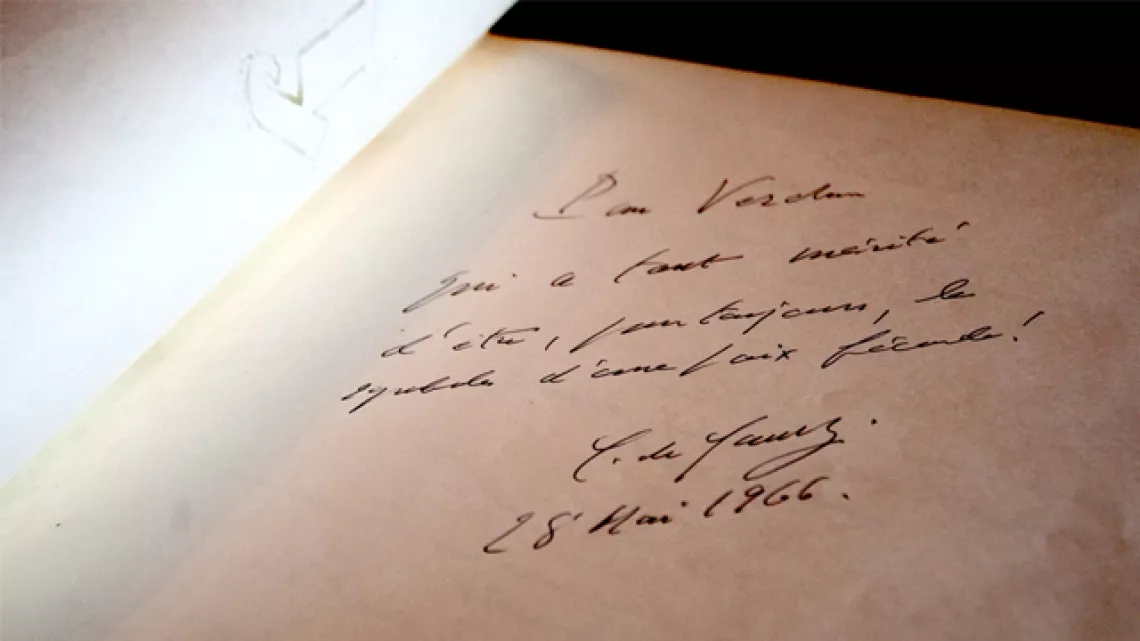 Pour Verdun
qui a tant mérité
d'être, pour toujours, le
symbole d'une paix féconde !
C. de Gaulle.
28 Mai 1966.